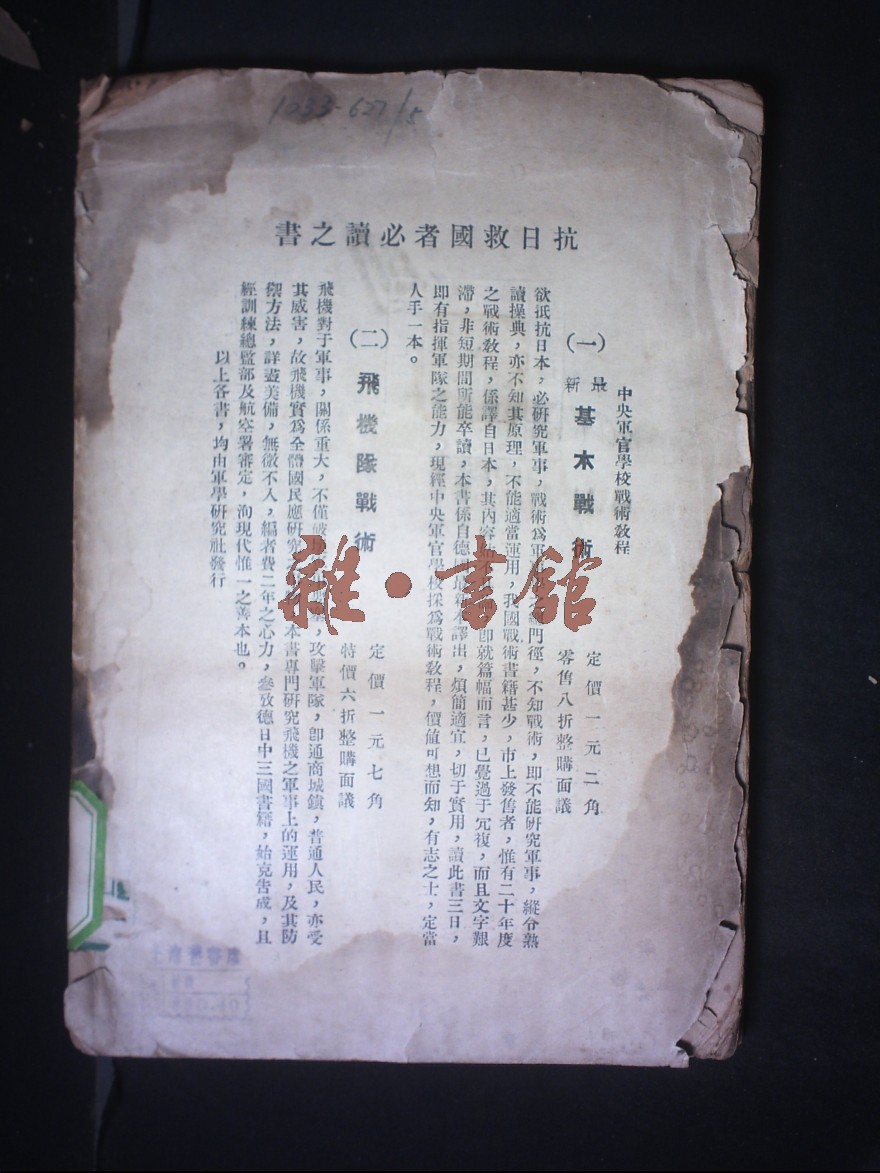 1033-627/15
抗日救國者必讀之書
中央軍官學校戰術教程
(一)最新基本戰術
定價一元二角
零售八折整購面議
欲抵抗日本，必研究軍事，戰術爲軍門徑，不知戰術，即不能研究軍事，縱令熟
讀操典，亦不知其原理，不能適當運用，我國戰術書籍甚少，市上發售者，惟有二十年度
之戰術教程，係譯自日本，其內容即就篇幅而言，已覺過于冗複，而且文字艱
滯，非短期間所能卒讀，本書係自德最本譯出，煩簡適宜，切于實用，讀此書三日，
即有指揮軍隊之能力，現經中央軍官學校採爲戰術教程，價值可想而知，有志之士，定當
人手一本。
(二)飛機隊戰術
定價一元七角
特價六折整購面議
飛機對于軍事，關係重大，不僅破攻擊軍隊，卽通商城鎮，普通人民，亦受
其威害，故飛機實爲全體國民應研究本書專門研究飛機之軍事上的運用，及其防
禦方法，詳盡美備，無微不入，編者費二年之心力，叄攷德日中三國書籍，始克吿成，且
經訓練總監部及航空署審定，洵現代惟一之善本也。
以上各書，均由軍學硏究社發行
雜·書館